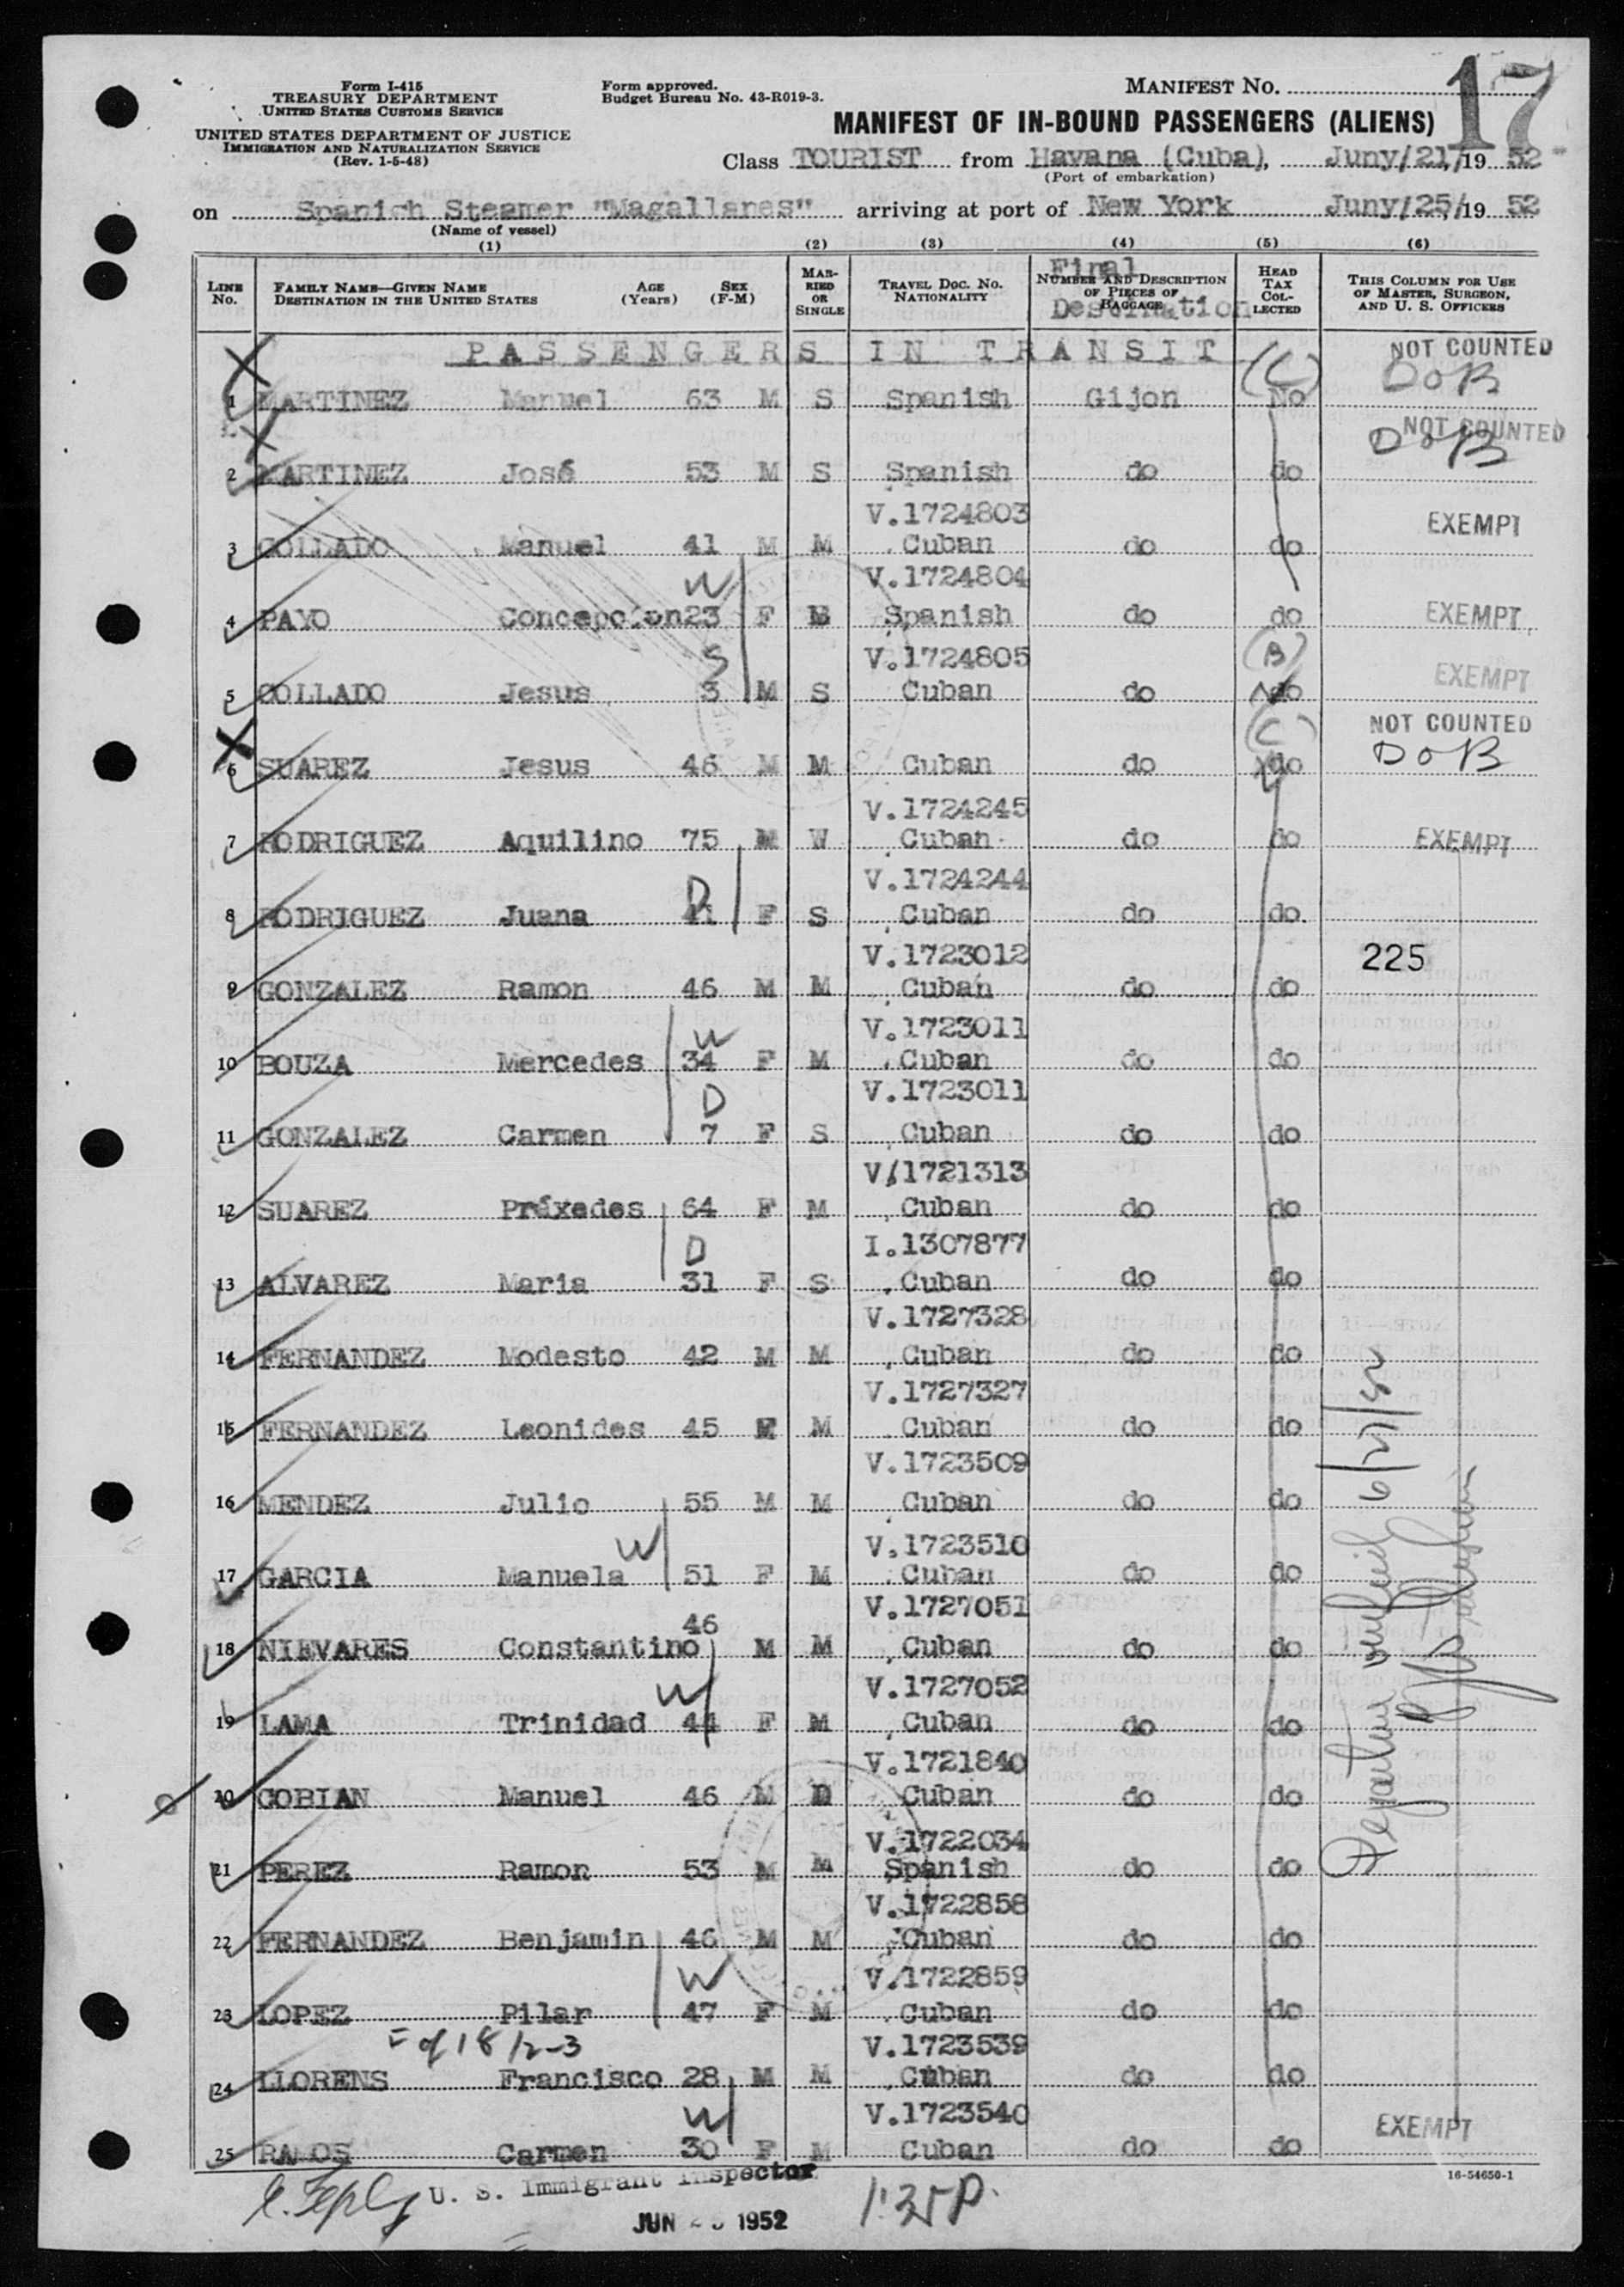 17
Form I-415
TREASURY DEPARTMENT
UNITED STATES CUSTOMS SERVICE
UNITED STATES DEPARTMENT OF JUSTICE
IMMIGRATION AND NATURALIZATION SERVICE
(Rev. 1-5-48)
Form approved.
Budget Bureau No. 43-R019-3.
MANIFEST No.
MANIFEST OF IN-BOUND PASSENGERS (ALIENS)
Class TOURIST from Havana (Cuba), Juny/21/19 52
(Port of embarkation)
on Spanish Steamer "Magallanes" arriving at port of New York Juny/25/19 52
(Name of vessel)
(1) (2) (3) (4) (5) (6)
LINE No. FAMILY NAME—GIVEN NAME DESTINATION IN THE UNITED STATES AGE (Years) SEX (F-M) MARRIED OR SINGLE TRAVEL DOC. NO. NATIONALITY NUMBER AND DESCRIPTION OF PIECES OF BAGGAGE HEAD TAX COLLECTED THIS COLUMN FOR USE OF MASTER, SURGEON, AND U. S. OFFICERS
Final Destination
PASSENGERS IN TRANSIT
NOT COUNTED
(C) DOB
1 MARTINEZ Manuel 63 M S Spanish Gijon No
NOT COUNTED
DOB
2 MARTINEZ José 53 M S Spanish do do
V.1724803 EXEMPT
3 COLLADO Manuel 41 M M Cuban do do
W V.1724804
4 PAYO Concepcion 23 F Spanish do do EXEMPT
S V.1724805 (B)
5 COLLADO Jesus 3 M S Cuban do do EXEMPT
(C) NOT COUNTED
6 SUAREZ Jesus 46 M M Cuban do do DOB
V.1724245
7 RODRIGUEZ Aquilino 75 M W Cuban do do EXEMPT
D V.1724244
8 RODRIGUEZ Juana 41 F S Cuban do do
V.1723012 225
9 GONZALEZ Ramon 46 M M Cuban do do
W V.1723011
10 BOUZA Mercedes 34 F M Cuban do do
D V.1723011
11 GONZALEZ Carmen 7 F S Cuban do do
V/1721313
12 SUAREZ Práxedes 64 F M Cuban do do
D I.1307877
13 ALVAREZ Maria 31 F S Cuban do do
V.1727328
14 FERNANDEZ Modesto 42 M M Cuban do do
V.1727327
15 FERNANDEZ Leonides 45 M Cuban do do
V.1723509
16 MENDEZ Julio 55 M M Cuban do do
W V.1723510
17 GARCIA Manuela 51 F M Cuban do do
46 V.1727051
18 NIEVARES Constantino M M Cuban do do
W V.1727052
19 LAMA Trinidad 44 F M Cuban do do
V.1721840
20 COBIAN Manuel 46 M D Cuban do do
V.1722034
21 PEREZ Ramon 53 M M Spanish do do
V.1722858
22 FERNANDEZ Benjamin 46 M M Cuban do do
W V.1722859
23 LOPEZ Pilar 47 F M Cuban do do
V.1723539
24 LLORENS Francisco 28 M M Cuban do do
W V.1723540
25 RAMOS Carmen 30 F M Cuban do do EXEMPT
16-54650-1
U. S. Immigrant Inspector
JUN 1952
1:35 P.
Departure verified 6/27/52